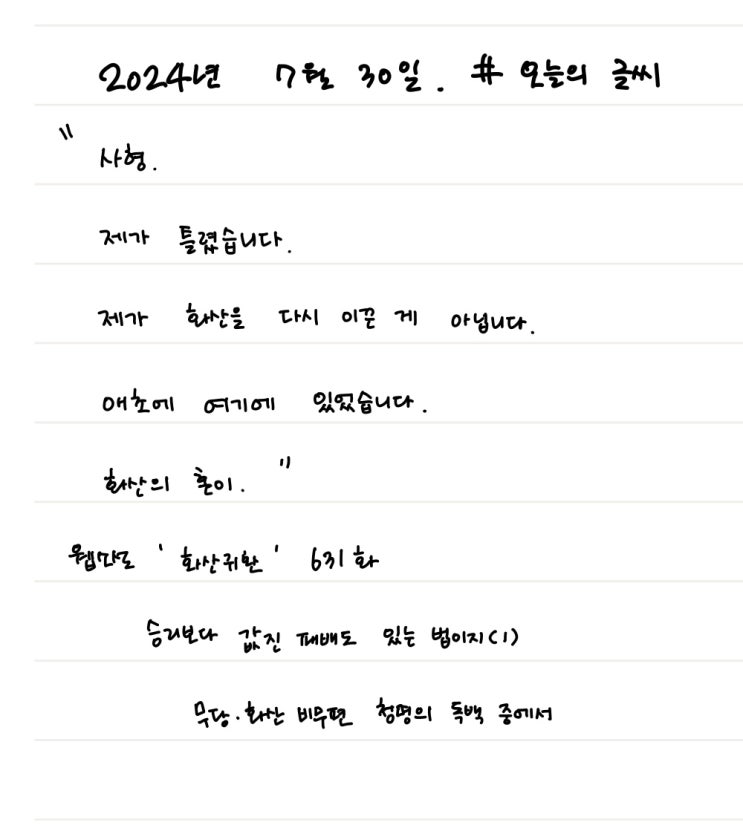 2024년 7월 30일. # 오늘의 글씨
"사형.
제가 틀렸습니다.
제가 화산을 다시 이끈 게 아닙니다.
애초에 여기에 있었습니다.
화산의 혼이."
웹만도 '화산귀환' 631화
승리보다 값진 패배도 있는 법이지(1)
무당·화산 비무편 청명의 독백 중에서